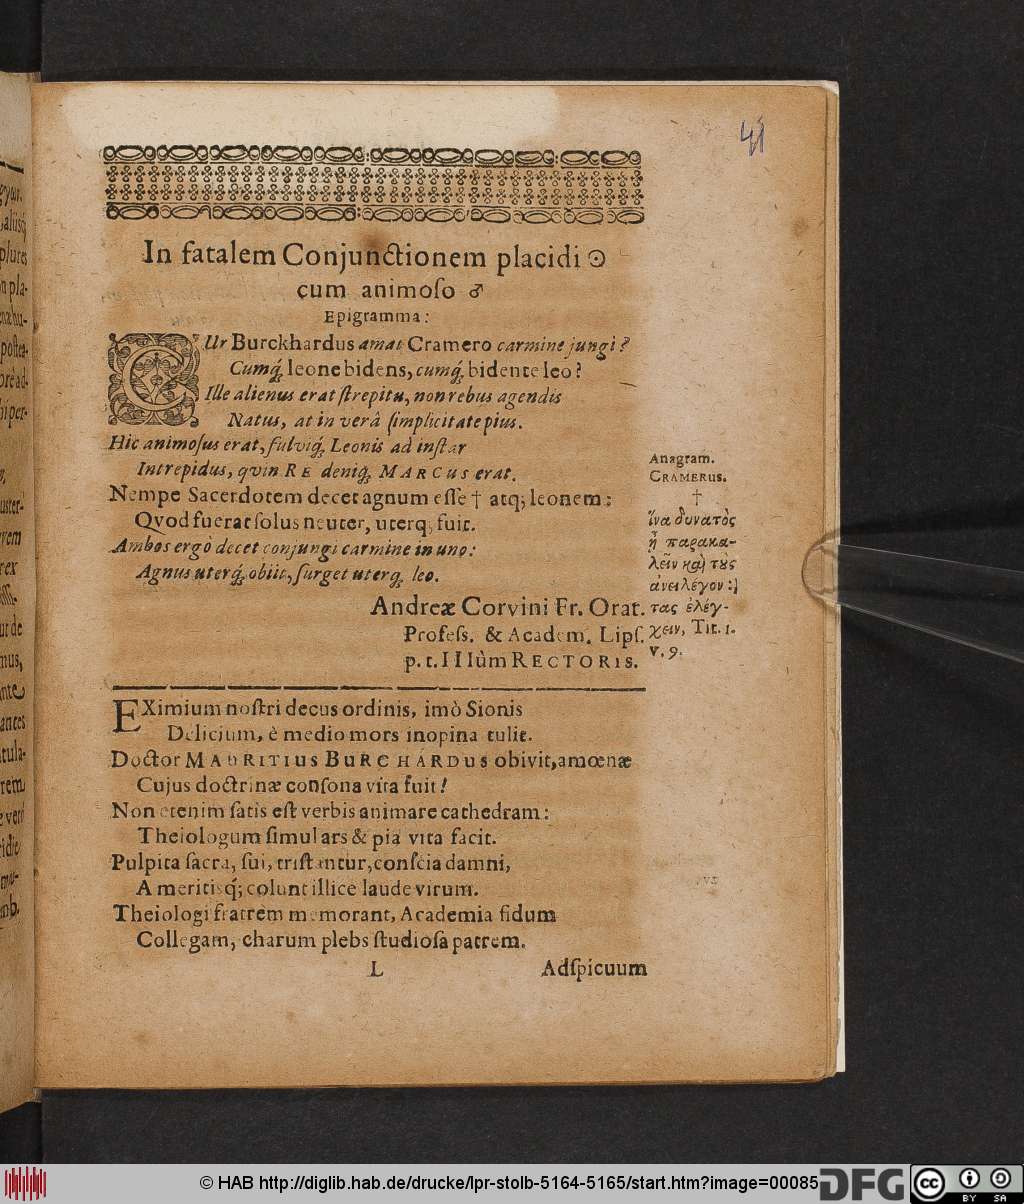 41
In fatalem Conjunctionem placidi ☉
cum animoſo ♂
Epigramma:
CUr Burckhardus amat Cramero carmine jungi?
Cumq́; leone bidens, cumq́; bidente leo?
Ille alienus erat ſtrepitu, non rebus agendis
Natus, at in verâ ſimplicitate pius.
Hic animoſus erat, fulviq́; Leonis ad inſtar
Intrepidus, qvin RE deniq́; MARCUS erat.
Nempe Sacerdotem decet agnum eſſe † atq; leonem:
Qvod fuerat ſolus neuter, uterq; fuit.
Ambos ergò decet conjungi carmine in uno:
Agnus uterq́; obiit, ſurget uterq; leo.
Andreæ Corvini Fr. Orat.
Profeſs. & Academ. Lipſ.
p. t. IIIùm RECTORIS.
Anagram.
CRAMERUS.
†
ἵνα δυνατὸς
ᾖ παρακα-
λεῖν καὶ τοὺς
ἀντιλέγον-
τας ἐλέγ-
χειν, Tit. 1.
v. 9.
EXimium noſtri decus ordinis, imò Sionis
Delicium, è medio mors inopina tulit.
Doctor MAURITIUS BURCHARDUS obivit, amœnæ
Cujus doctrinæ conſona vita fuit!
Non etenim ſatis eſt verbis animare cathedram:
Theiologum ſimul ars & pia vita facit.
Pulpita ſacra, ſui, triſtantur, conſcia damni,
A meritisq́; colunt illice laude virum.
Theiologi fratrem memorant, Academia fidum
Collegam, charum plebs ſtudioſa patrem.
L
Adſpicuum
© HAB http://diglib.hab.de/drucke/lpr-stolb-5164-5165/start.htm?image=00085
DFG
cc
BY SA